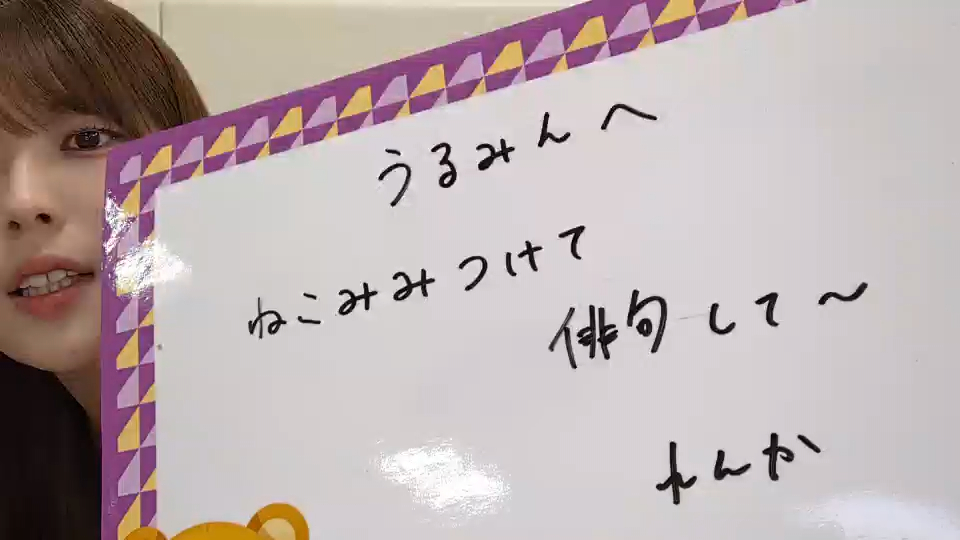 うるみんへ
ねこみみつけて
俳句して〜
れんか